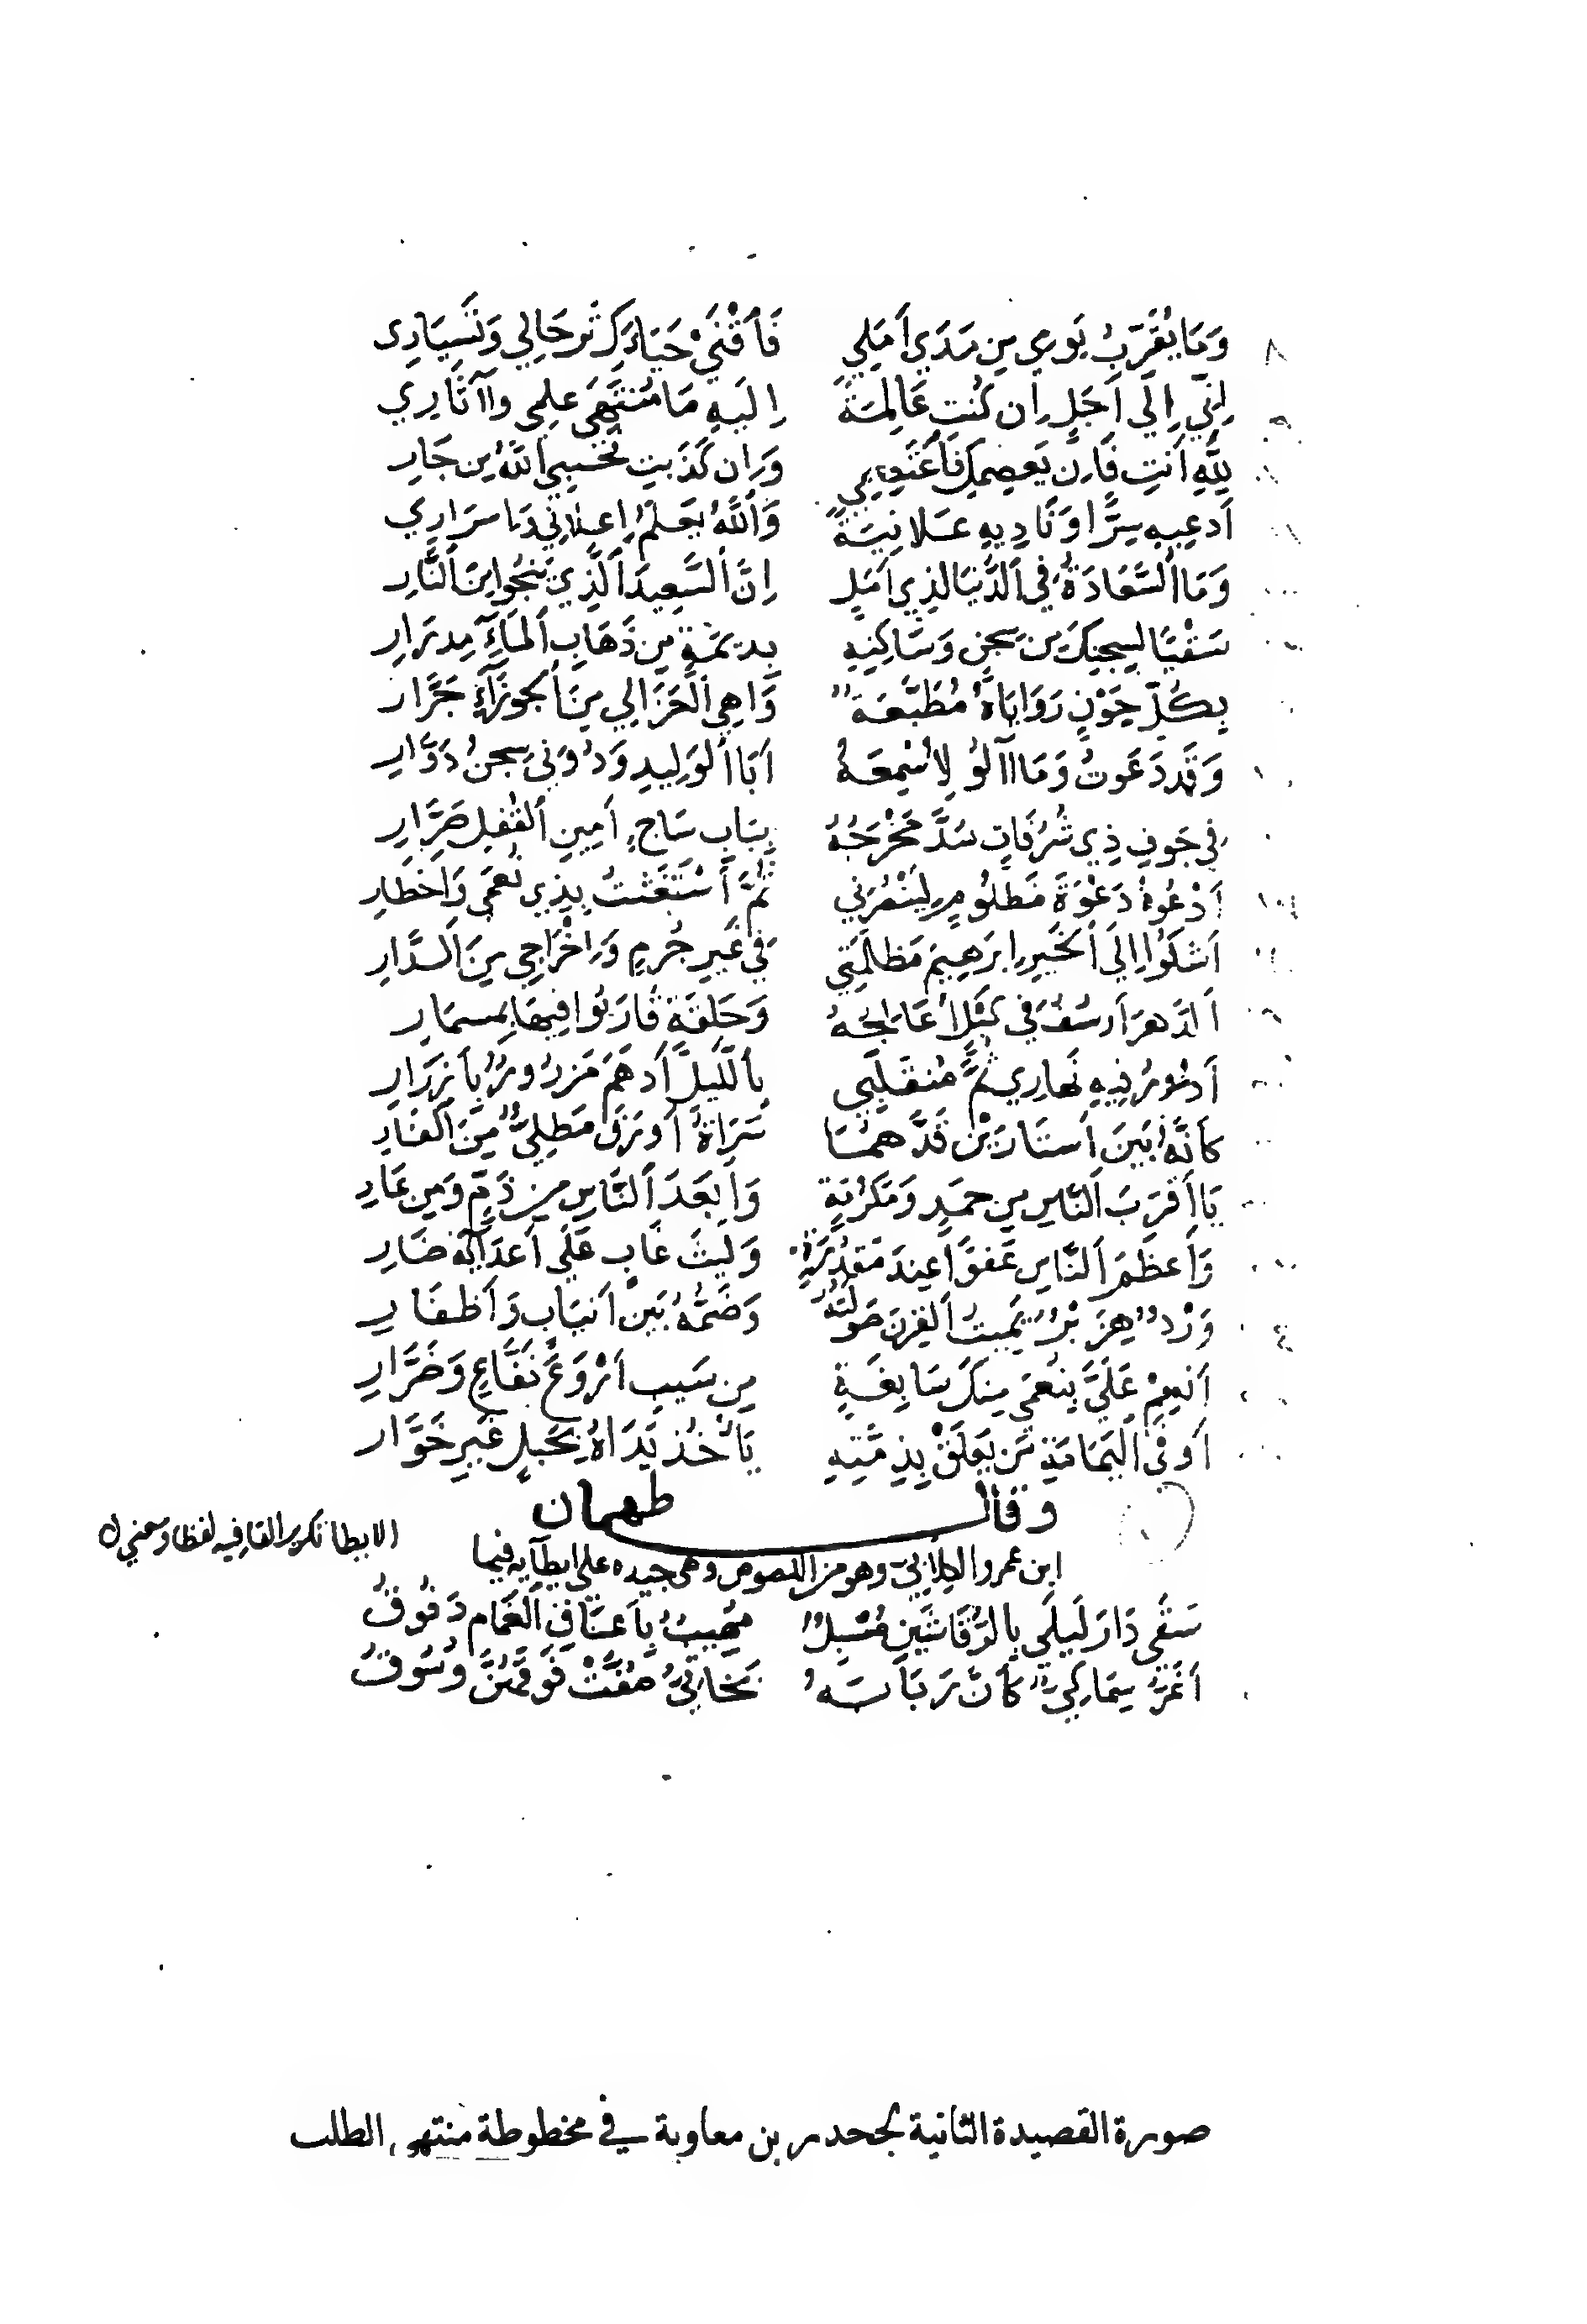 وَمَا يُقَرِّبُ يَومِي مِن مَدَى أَمَلِي فَأَقْنَيْ حَيَاءَكِ تَرحَالِي وَتَسيَارِي
إِنِّي إِلَى أَجَلٍ إِن كُنتِ عَالِمَةً إِلَيهِ مَا مُنتَهَى عِلمِي وَآثَارِي
لِلَّهِ أَنتِ فَإِن يَعصِمكِ فَأَعتَصِمِي وَإِن كَذَبتِ فَحَسبِي اللَّهُ مِن جَارِ
أَدعِيهِ سِرًّا وَنَادِيهِ عَلَانِيَةً وَاللَّهُ يَعلَمُ إِعلَانِي وَاسرَارِي
وَمَا السَّعَادَةُ فِي الدُّنيَا لِذِي أَمَلٍ إِنَّ السَّعِيدَ الَّذِي يَنجُوا مِنَ النَّارِ
سَقْيًا لِسِجنِكَ مِن سِجنٍ وَسَاكِنِهِ بِدِيمَةٍ مِن ذَهَابِ المَاءِ مِدرَارِ
بِكُلِّ جَوْنٍ رَوَايَاهُ مُطَبَّعَةٌ وَاهِي العَزَالِي مِنَ الجَوزَاءِ جَرَّارِ
وَقَد دَعَوتُ وَمَا آلُو لِأُسْمِعَهُ أَبَا الوَلِيدِ وَدُونِي سِجنُ دَوَّارِ
فِي جَوفِ ذِي شُرُفَاتٍ سُدَّ مَخْرَجُهُ بِبَابِ سَاجٍ أَمِينِ القُفْلِ صَرَّارِ
أَدْعُوهُ دَعْوَةَ مَظلُومٍ لِيَنْصُرَنِي ثُمَّ أَسْتَغَثتُ بِذِي نُعمَى وَأَخطَارِ
أَشكُوا إِلَى الخَيرِ إِبرَهِيمَ مَظلَمَتِي فِي غَيرِ جُرمٍ وَإِخْرَاجِي مِنَ الدَّارِ
الدَّهرَ أَرسُفُ فِي كَبلٍ أُعَالِجُهُ وَحَلقَةٍ قَارَبُوا فِيهَا بِمِسمَارِ
أَدُورُ فِيهِ نَهَارِي ثُمَّ مُنقَلَبِي بِاللَّيلِ أَدهَمُ مَزرُورٌ بِأَزرَارِ
كَأَنَّهُ بَينَ أَستَارَيْنِ قَدَّهُمَا سَرَاةُ أَورَقَ مَطلِيٌّ مِنَ القَارِ
يَا أَقرَبَ النَّاسِ مِن حَمدٍ وَمَكرُمَةٍ وَأَبعَدَ النَّاسِ مِن ذَمٍّ وَمِن عَارِ
وَأَعظَمَ النَّاسِ عَفوًا عِندَ مَقدُرَةٍ وَلَيثَ غَابٍ عَلَى أَعدَائِهِ ضَارِ
وَرْدٌ هِزَبْرٌ يُمِيتُ القِرنَ صَولَتُهُ وَضَمُّهُ بَينَ أَنيَابٍ وَأَظفَارِ
أَنعِمْ عَلَيَّ بِنُعمَى مِنكَ سَابِغَةٍ مِن سَيبِ أَرْوَعَ نَفَّاعٍ وَضَرَّارِ
أَوفَى اليَمَامَةِ مَن يَعلَقْ بِذِمَّتِهِ يَأخُذ يَدَاهُ بِحَبلٍ غَيرِ خَوَّارِ
وقال طهمان
الايطا تكرير القافيه لفظا ومعنى
ابن عمرو الكِلَابِيّ وهو من اللصوص وهى جيده على ايطآيه فيها
سَقَى دَارَ لَيلَى بِالرَّقَاشَينِ مُسْبِلٌ مُهِيبٌ بِأَعنَاقِ الغَمَامِ دَفُوقُ
أَغَرُّ سِمَاكِيٌّ كَأَنَّ رَبَابَهُ بَخَاتِيُّ صُفَّتْ فَوقَهُنَّ وُسُوقُ
صورة القصيدة الثانية لجحدر بن معاوية في مخطوطة منتهى الطلب